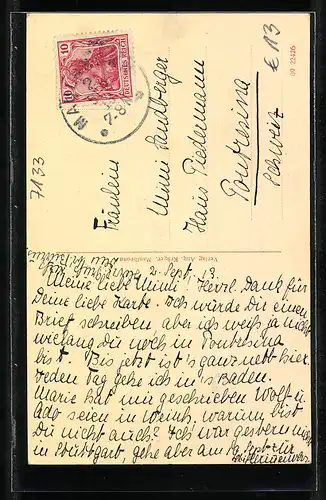 10
10
DEUTSCHES REICH
7-8
Fräulein
Mimi Landberger
Haus Piedermann
Pontresina
Schweiz
€ 13
09 22426
7133
Verlag Aug. Krüger, Maulbronn
2. Sept. 13.
Meine liebe Mimi! Herzl. Dank für
Deine liebe Karte. Ich würde Dir einen
Brief schreiben, aber ich weiß ja nicht
wielang Du noch in Pontresina
bist. Bis jetzt ist's ganz nett hier.
Jeden Tag gehe ich in's Baden.
Marie hat mir geschrieben Wolf u.
Ado seien in Weinh, warum bist
Du nicht auch? Ich war gestern nicht
in Stuttgart, gehe aber am Sept für